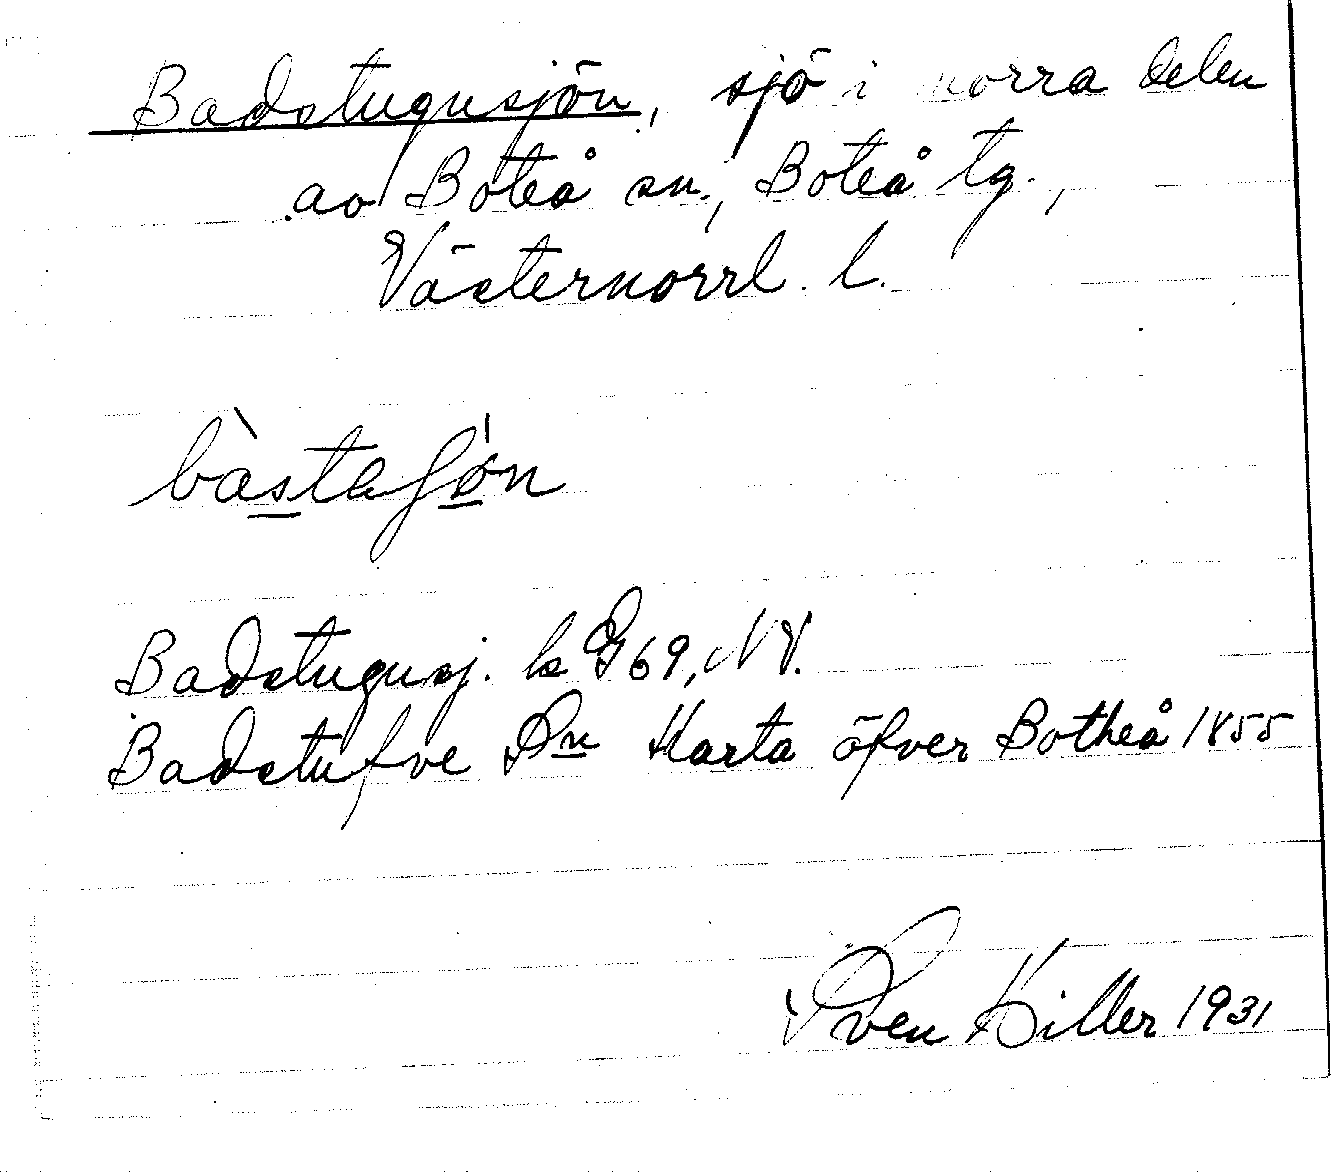 Badstugusjön, sjö i norra delen
av Boteå sn., Boteå tg.,
Västernorrl. l.
bàstaʃø̀n
Badstugusj. ks G69, NV.
Badstufve Sn Karta öfver Botheå 1855
Sven Hiller 1931